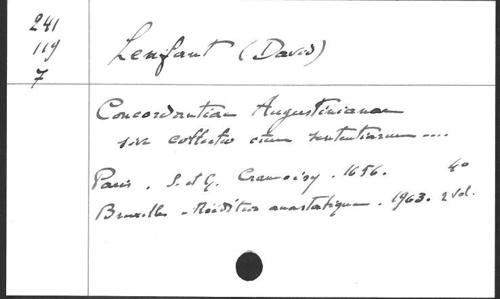 241
119
7
Lenfant (David)
Concordantiae Augustinianae
sive collectio omnium sententiarum ....
Paris. S. et G. Cramoisy. 1656. 4º
Bruxelles - Réédition anastatique. 1963. 2 vol.